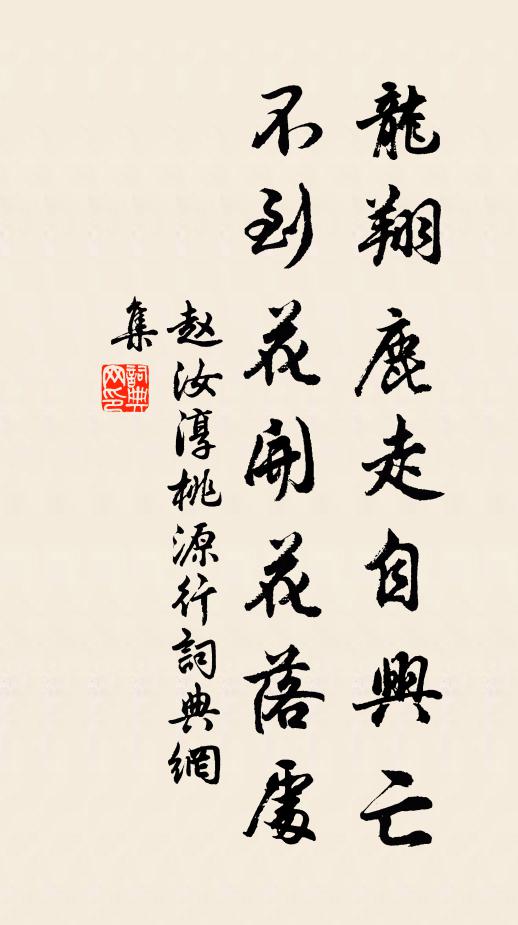 龍翔鹿走自興亡
不到花開花落處
赵汝淳桃源行詞典網
集
詞典
网印